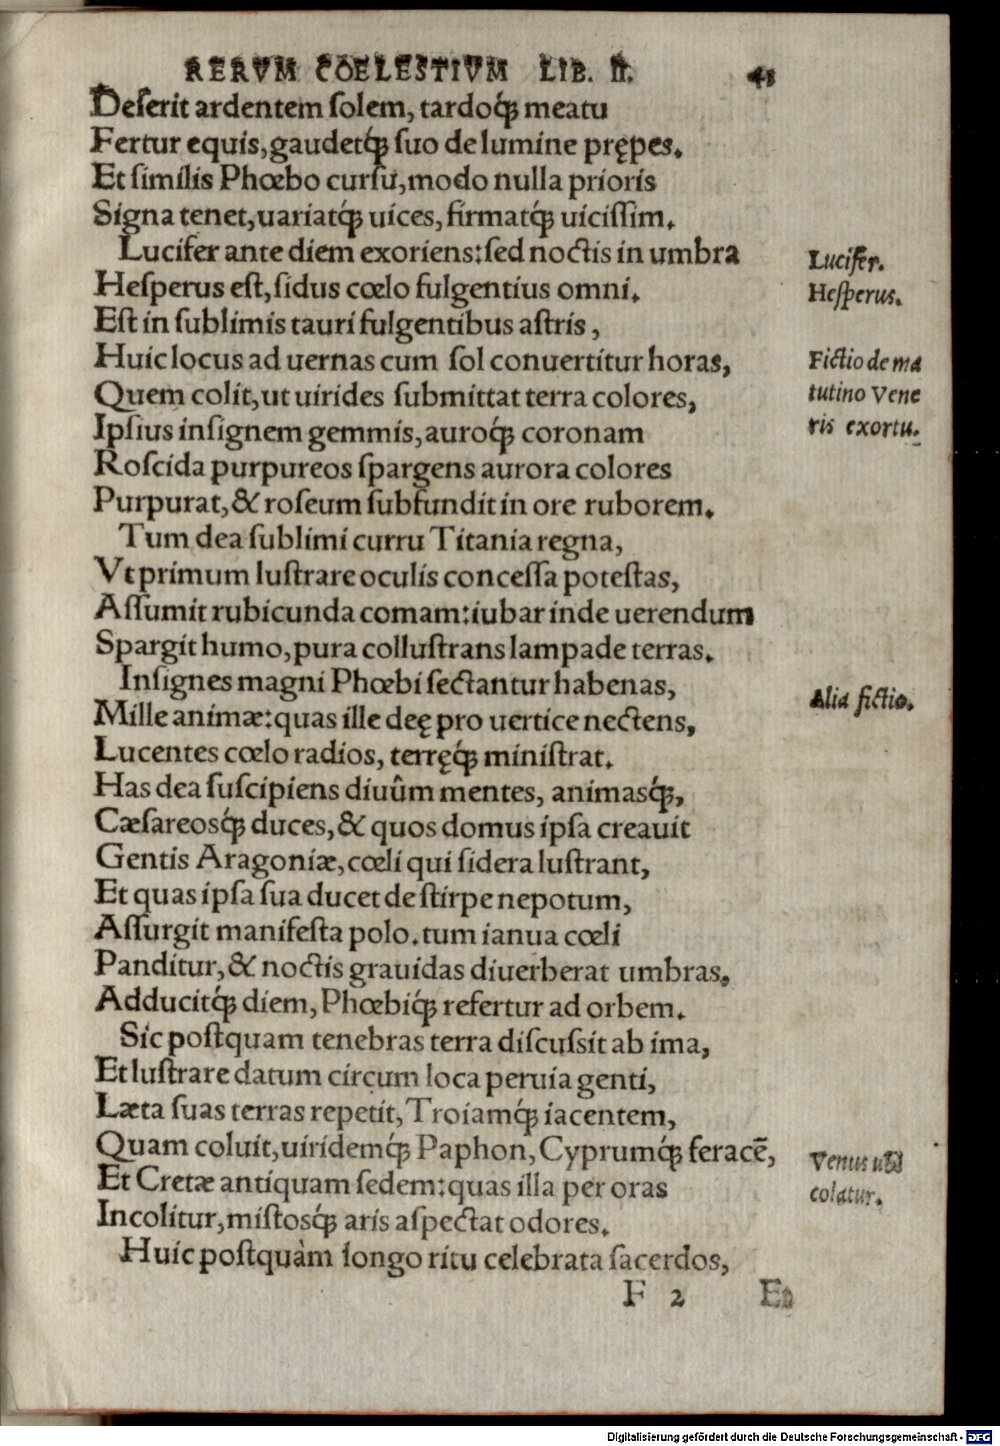 RERVM COELESTIVM LIB. II.
Deſerit ardentem ſolem, tardoq́ꝫ meatu
Fertur equis, gaudetq́ꝫ ſuo de lumine prępes.
Et ſimilis Phœbo curſu, modo nulla prioris
Signa tenet, uariatq́ꝫ uices, firmatq́ꝫ uiciſſim.
Lucifer ante diem exoriens: ſed noctis in umbra
Heſperus eſt, ſidus cœlo fulgentius omni.
Eſt in ſublimis tauri fulgentibus aſtris,
Huic locus ad uernas cum ſol conuertitur horas,
Quem colit, ut uirides ſubmittat terra colores,
Ipſius inſignem gemmis, auroq́ꝫ coronam
Roſcida purpureos ſpargens aurora colores
Purpurat, & roſeum ſubfundit in ore ruborem.
Tum dea ſublimi curru Titania regna,
Vt primum luſtrare oculis conceſſa poteſtas,
Aſſumit rubicunda comam: iubar inde uerendum
Spargit humo, pura colluſtrans lampade terras.
Inſignes magni Phœbi ſectantur habenas,
Mille animæ: quas ille deę pro uertice nectens,
Lucentes cœlo radios, terręq́ꝫ miniſtrat.
Has dea ſuſcipiens diuûm mentes, animasq́ꝫ,
Cæſareosq́ꝫ duces, & quos domus ipſa creauit
Gentis Aragoniæ, cœli qui ſidera luſtrant,
Et quas ipſa ſua ducet de ſtirpe nepotum,
Aſſurgit manifeſta polo. tum ianua cœli
Panditur, & noctis grauidas diuerberat umbras,
Adducitq́ꝫ diem, Phœbiq́ꝫ refertur ad orbem.
Sic poſtquam tenebras terra diſcuſsit ab ima,
Et luſtrare datum circum loca peruia genti,
Læta ſuas terras repetit, Troiamq́ꝫ iacentem,
Quam coluit, uiridemq́ꝫ Paphon, Cyprumq́ꝫ feracē,
Et Cretæ antiquam ſedem: quas illa per oras
Incolitur, miſtosq́ꝫ aris aſpectat odores.
Huic poſtquàm longo ritu celebrata ſacerdos,
F 2
Lucifer.
Heſperus.
Fictio de ma
tutino Vene
ris exortu.
Alia fictio.
Venus ubi
colatur.
Digitalisierung gefördert durch die Deutsche Forschungsgemeinschaft - DFG